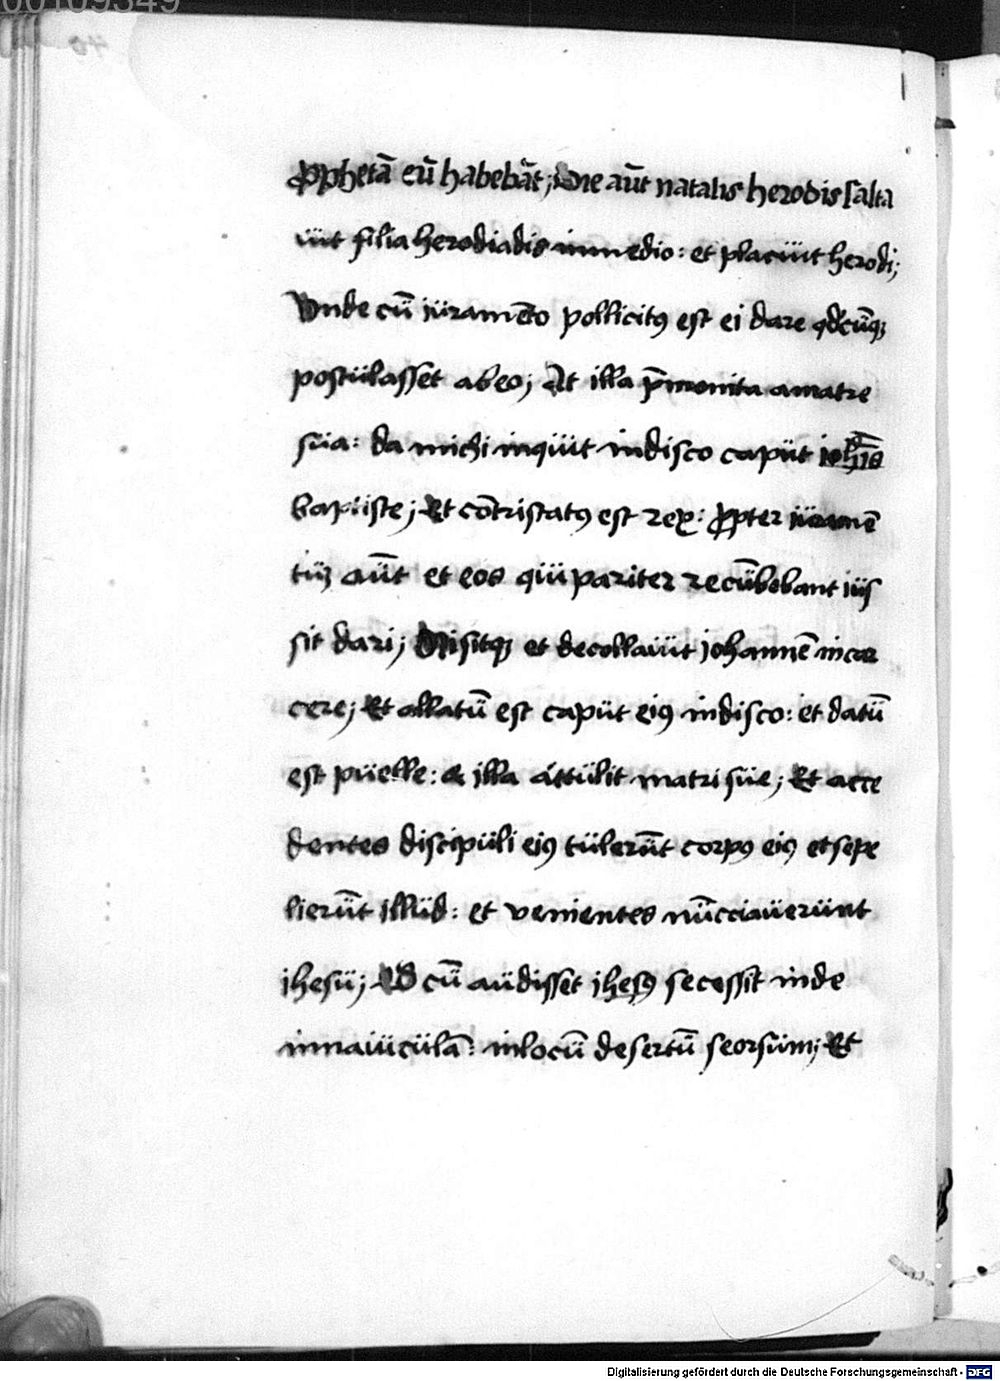 00109349
ꝓphetā eū habebāt; Die aūt natalis herodis salta
uit filia herodiadis inmedio: et placuit herodi;
Vnde cū iuramēto pollicitꝰ est ei dare qdcūqꝫ
postulasset abeo; At illa p̄monita amatre
sua: da michi inquit indisco caput ioh̄is
baptiste; Et cōtristatꝰ est rex: ꝓpter iuramē
tuꝫ aūt et eos qui pariter recūbebant ius
sit dari; Misitqꝫ et decollauit iohannē incar
cere; Et allatū est caput eiꝰ indisco: et datū
est puelle: & illa attulit matri sue; Et acce
dentes discipuli eiꝰ tulerūt corpꝰ eiꝰ et sepe
lierūt illud: et venientes nūcciauerunt
ihesu; Qd cū audisset ihesꝰ secessit inde
innauiculā: inlocū desertū seorsum; Et
Digitalisierung gefördert durch die Deutsche Forschungsgemeinschaft - DFG